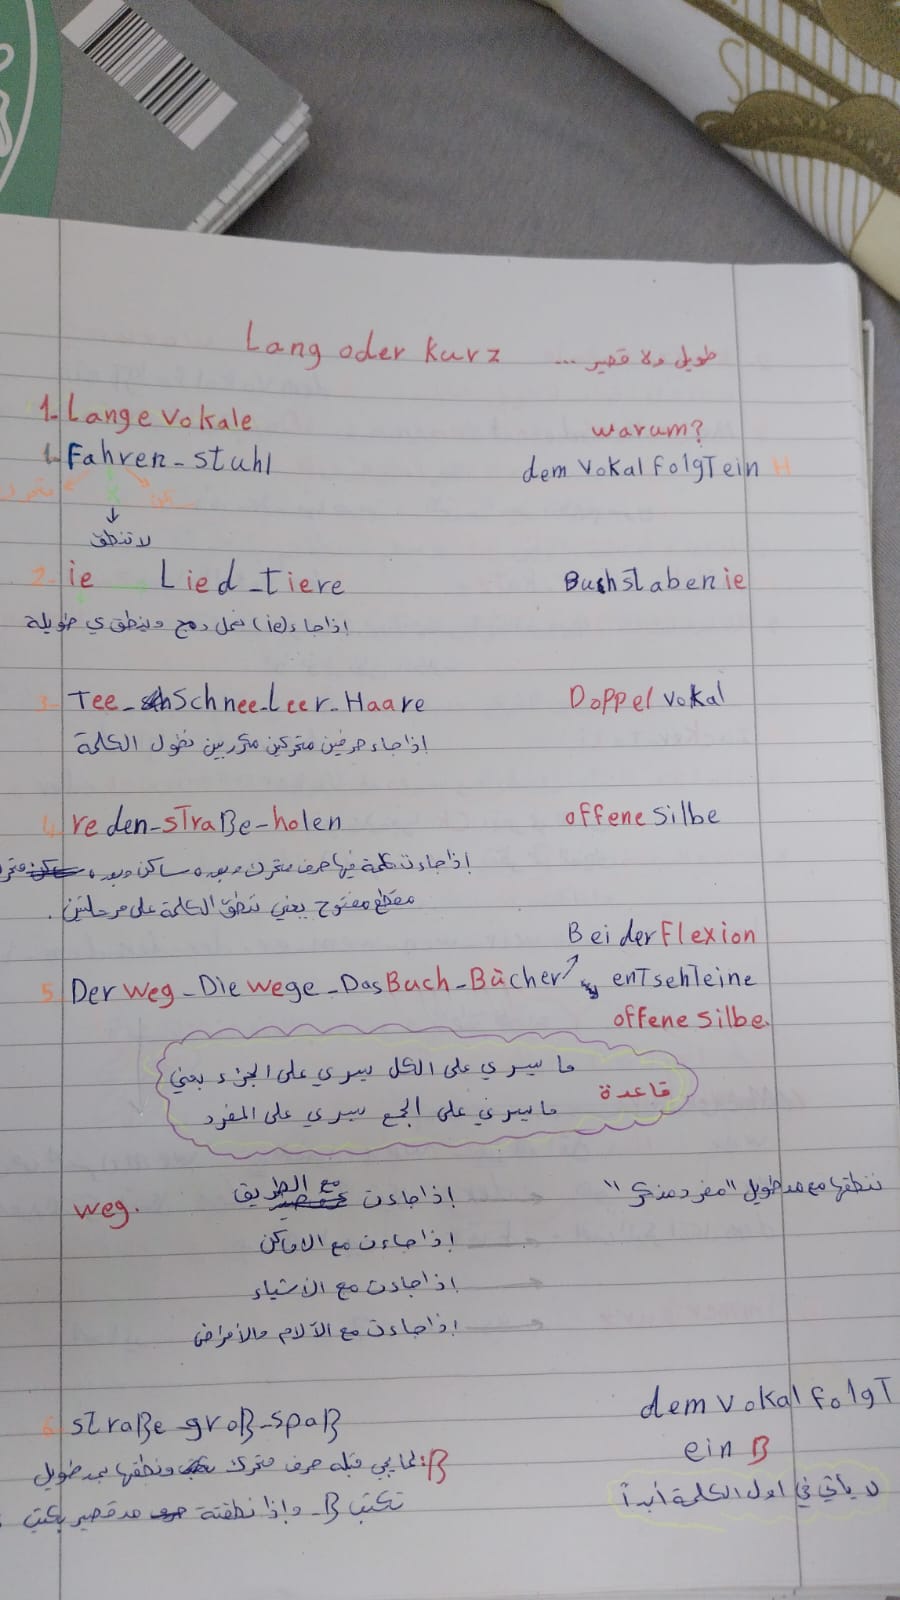 Lang oder kurz طويل ولا قصير ...
1- Lange vokale warum?
1- Fahren - stuhl dem vokal folgt ein H
لا تنطق
2- ie Lied - tiere Buchstaben ie
إذا جاء (ie) نعمل دمج وينطق ي طويلة
3- Tee - Schnee - Leer - Haare Doppel vokal
إذا جاء حرفين متحركين مكررين نطول الكلمة
4- reden - straße - holen offene silbe
إذا جاءت كلمة فيها حرف متحرك وبعده ساكن وبعده
مقطع مفتوح يعني تنطق الكلمة على مرحلتين.
Bei der Flexion
5- Der weg - Die wege - Das Buch - Bücher entsehleine
offene silbe.
ما يسري على الكل يسري على الجزء يعني
قاعدة
ما يسري على الجمع يسري على المفرد
weg. إذا جاءت مع الطريق ننطقها مع مد طويل "مفرد مذكر"
إذا جاءت مع الاماكن
إذا جاءت مع الأشياء
إذا جاءت مع الآلام والأمراض
6- straße - groß - spaß dem vokal folgt
ein ß
ß: لما يجي قبله حرف متحرك ونطقها بمد طويل
لا يأتي في اول الكلمة أبداً
تكتب ß وإذا نطقتة مد قصير يكتب